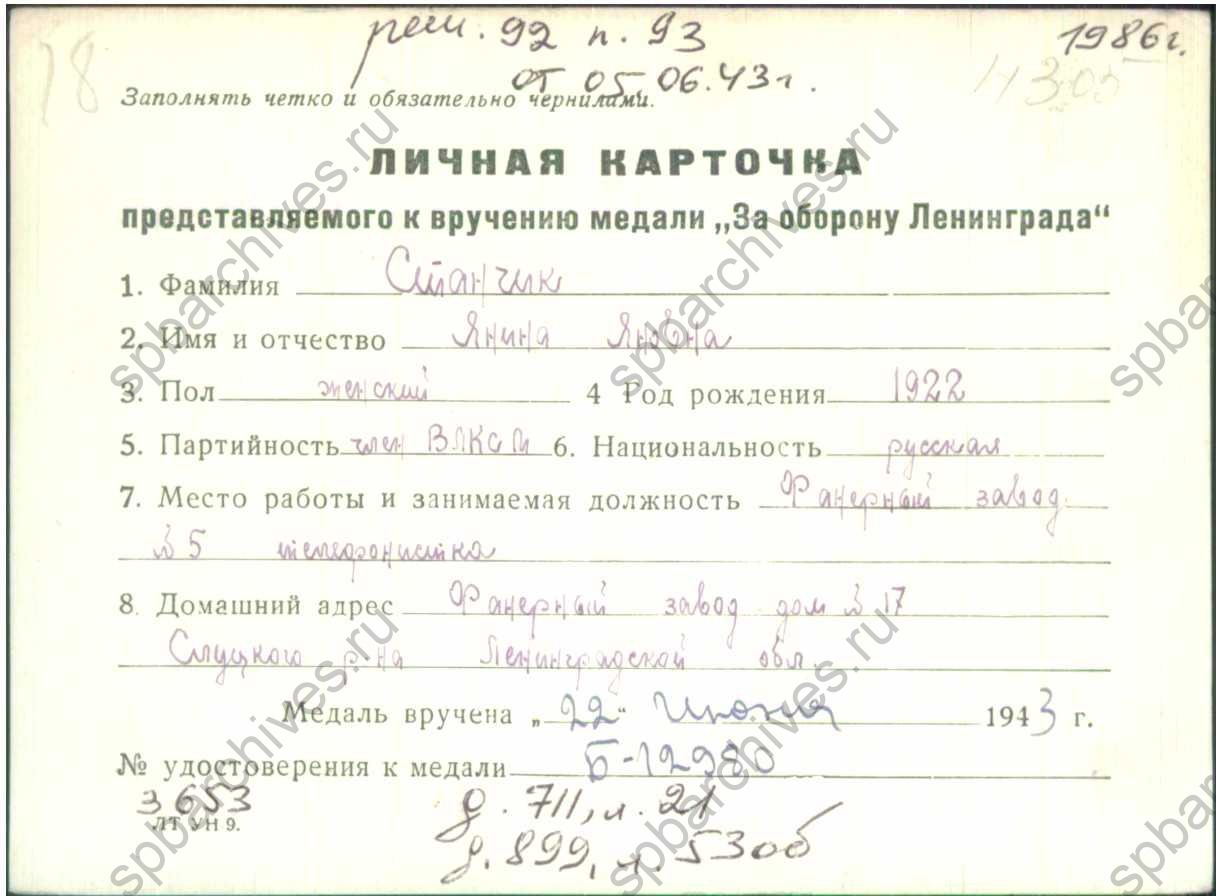 реш. 92 п. 93
1986г.
от 05.06.43г.
18
Н 305
Заполнять четко и обязательно чернилами.
ЛИЧНАЯ КАРТОЧКА
представляемого к вручению медали „За оборону Ленинграда“
1. Фамилия Станчик
2. Имя и отчество Янина Яновна
3. Пол женский 4 Год рождения 1922
5. Партийность член ВЛКСМ 6. Национальность русская
7. Место работы и занимаемая должность Фанерный завод
№ 5 телефонистка
8. Домашний адрес Фанерный завод дом № 17
Слуцкого р-на Ленинградской обл.
Медаль вручена „22“ Июня 1943 г.
№ удостоверения к медали Б-12980
3653
ЛТ УН 9.
д. 711, л. 21
д. 899, л. 53об
spbarchives.ru
spbarchives.ru
spbarchives.ru
spbarchives.ru
spbarchives.ru
spbarchives.ru